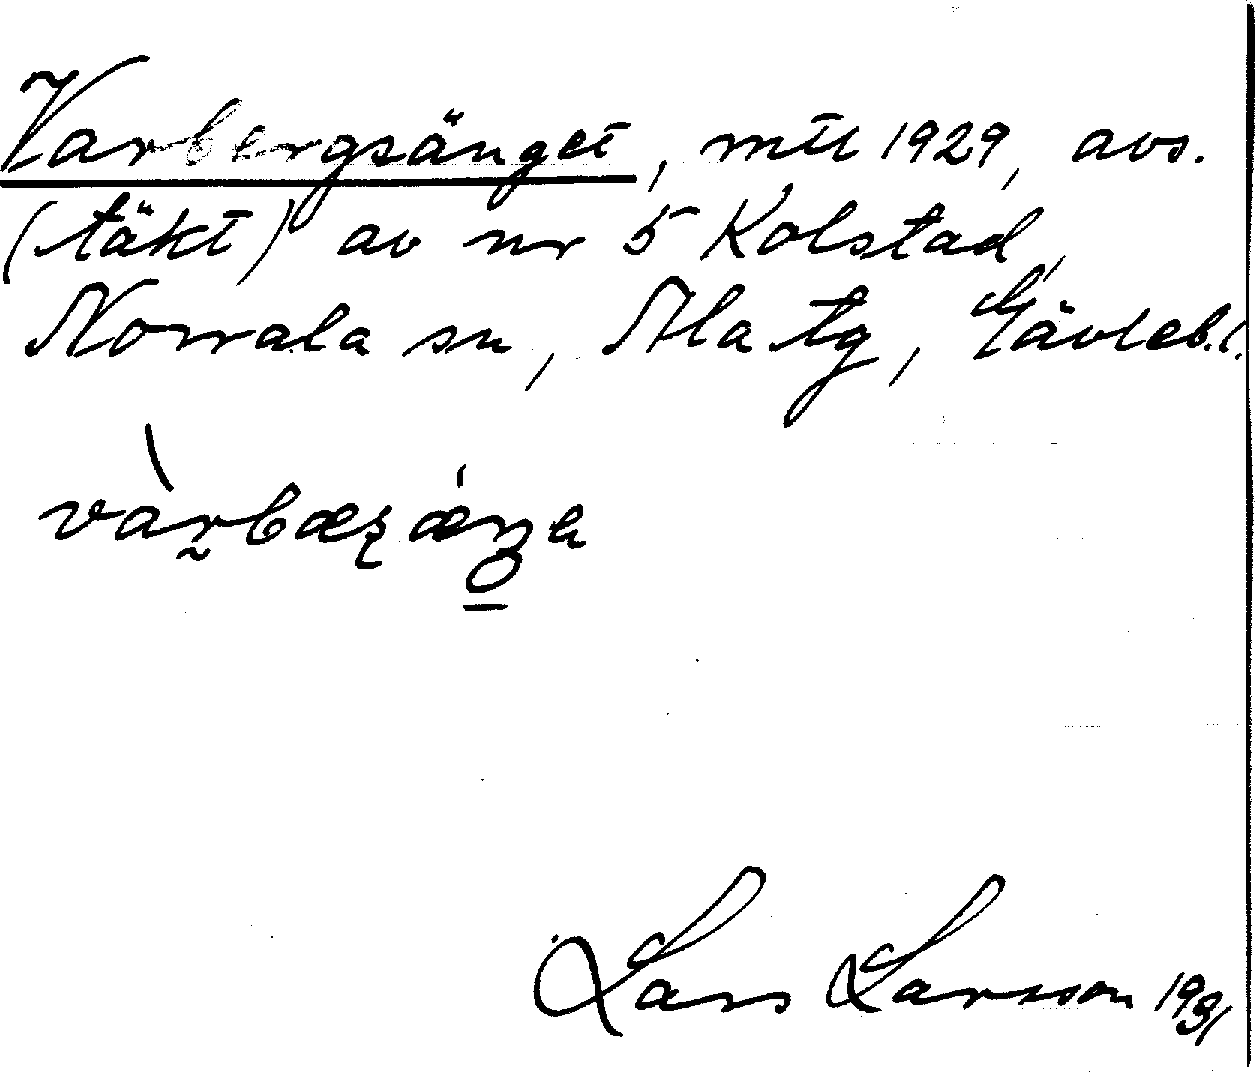 Varbergsänget, mtl 1929, avs.
(täkt) av nr 5 Kolstad,
Norrala sn, Ala tg, Gävleb.l.
Lars Larsson 1931